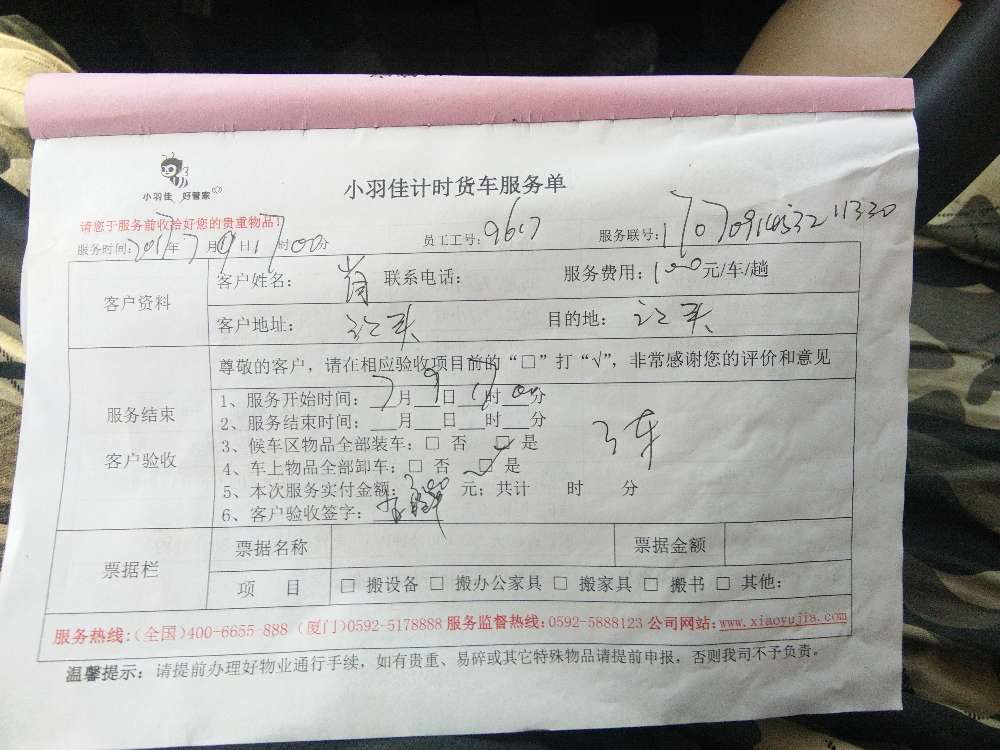 小羽佳 好管家
小羽佳计时货车服务单
请您于服务前收拾好您的贵重物品！
服务时间：2017年7月9日17时00分 员工工号：9617 服务联号：
客户资料
客户姓名：肖 联系电话： 服务费用：100元/车/趟
客户地址： 目的地：
服务结束
客户验收
尊敬的客户，请在相应验收项目前的“□”打“√”，非常感谢您的评价和意见
1、服务开始时间：7月9日17时00分
2、服务结束时间：___月___日___时___分
3、候车区物品全部装车：□ 否 ☑ 是
3车
4、车上物品全部卸车：□ 否 ☑ 是
5、本次服务实付金额：300 元；共计 时 分
6、客户验收签字：
票据栏
票据名称 票据金额
项 目 □ 搬设备 □ 搬办公家具 □ 搬家具 □ 搬书 □ 其他：
服务热线：（全国）400-6655-888 （厦门）0592-5178888 服务监督热线：0592-5888123 公司网站：www.xiaoyujia.com
温馨提示：请提前办理好物业通行手续，如有贵重、易碎或其它特殊物品请提前申报，否则我司不予负责。